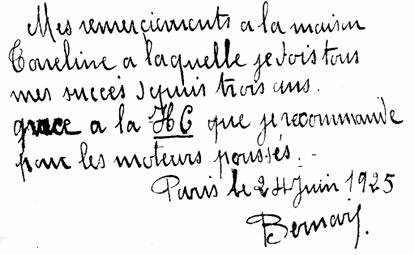 Mes remerciements a la maison
Toreline a laquelle je dois tous
mes succès depuis trois ans.
grace a la HC que je recommande
pour les moteurs poussés.
Paris le 24 Juin 1925